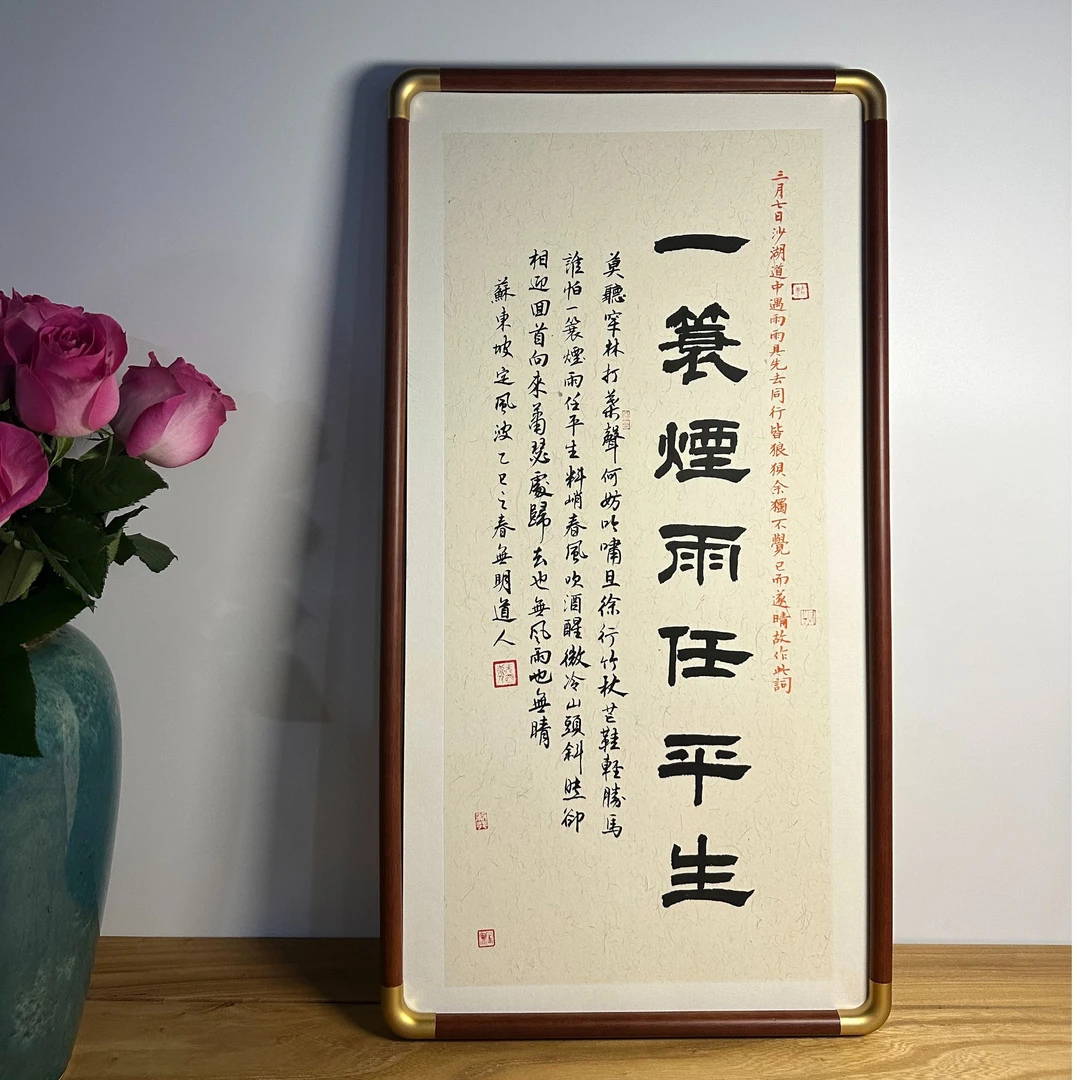 三月七日沙湖道中遇雨雨具先去同行皆狼狽余獨不覺已而遂晴故作此詞
一蓑煙雨任平生
莫聽穿林打葉聲何妨吟嘯且徐行竹杖芒鞋輕勝馬
誰怕一蓑煙雨任平生料峭春風吹酒醒微冷山頭斜照卻
相迎回首向來蕭瑟處歸去也無風雨也無晴
蘇東坡定風波乙巳之春無明道人